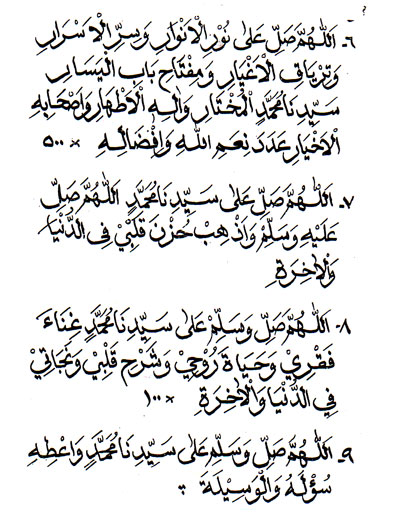 ٦- اَللّٰهُمَّ صَلِّ عَلٰى نُوْرِ الْاَنْوَارِ وَسِرِّ الْاَسْرَارِ
وَتِرْيَاقِ الْاَغْيَارِ وَمِفْتَاحِ بَابِ الْيَسَارِ
سَيِّدِنَا مُحَمَّدٍ الْمُخْتَارِ وَاٰلِهِ الْاَطْهَارِ وَاَصْحَابِهِ
الْاَخْيَارِ عَدَدَ نِعَمِ اللهِ وَاِفْضَالِهِ × ٥٠٠
٧- اَللّٰهُمَّ صَلِّ عَلٰى سَيِّدِنَا مُحَمَّدٍ اَللّٰهُمَّ صَلِّ
عَلَيْهِ وَسَلِّمْ وَاذْهِبْ حُزْنَ قَلْبِيْ فِى الدُّنْيَا
وَالْاٰخِرَةِ
٨- اَللّٰهُمَّ صَلِّ وَسَلِّمْ عَلٰى سَيِّدِنَا مُحَمَّدٍ غِنَاءَ
فَقْرِيْ وَحَيَاةَ رُوْحِيْ وَشَرْحَ قَلْبِيْ وَنَجَاتِيْ
فِي الدُّنْيَا وَالْاٰخِرَةِ × ١٠٠
٩- اَللّٰهُمَّ صَلِّ وَسَلِّمْ عَلٰى سَيِّدِنَا مُحَمَّدٍ وَاعْطِهِ
سُؤْلَهُ وَالْوَسِيْلَةَ